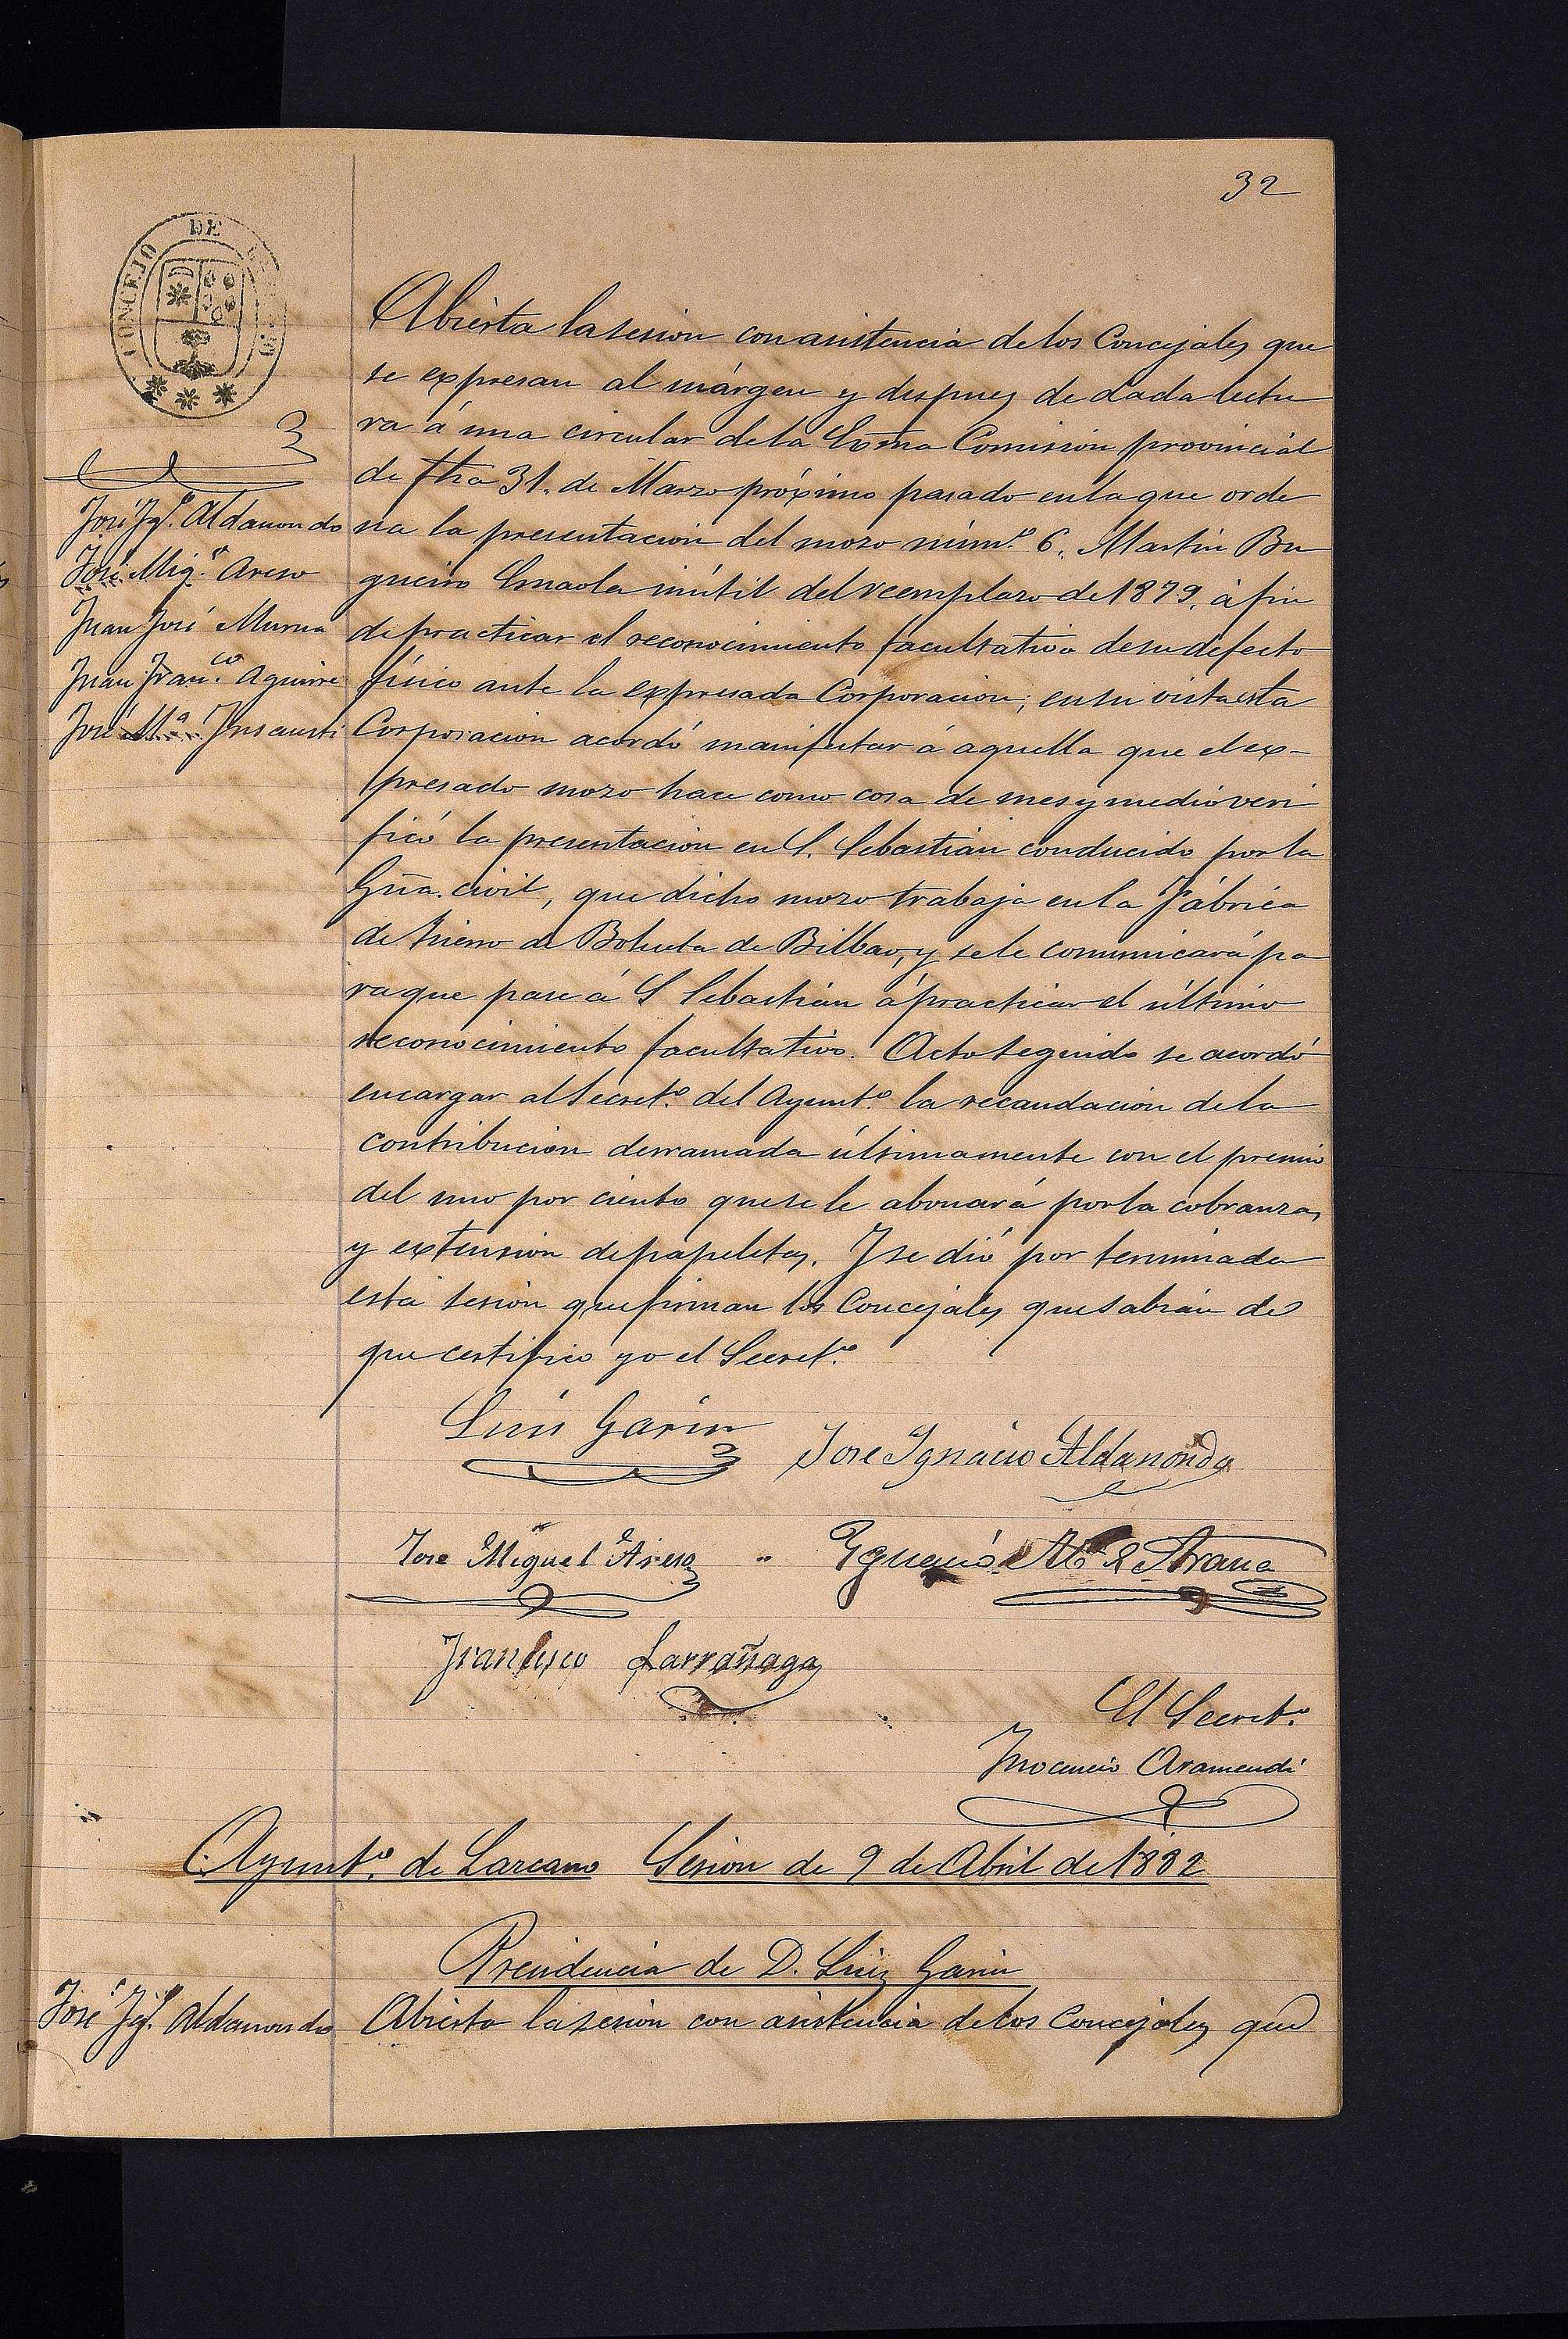 32
CONCEJO DE
Abierta la sesion con asistencia de los Concejales que
se expresan al márgen y despues de dada lectu
ra á una circular de la Exma Comision provincial
de fha 31. de Marzo próximo pasado en la que orde
José Ign.º Aldanondo
na la presentacion del mozo núm.º 6, Martin Bu
José Mig.l Areso
gueiro Imaola inútil del reemplazo de 1879, á fin
Juan José Murua
de practicar el reconocimiento facultativo de su defecto
Juan Fran.co Aguirre
físico ante la expresada Corporacion; en su vista esta
José M.a Insausti
Corporacion acordó manifestar á aquella que el ex-
presado mozo hace como cosa de mes y medio veri
ficó la presentacion en S. Sebastian conducido por la
Gũa. civil, que dicho mozo trabaja en la Fábrica
de hierro de Bolueta de Bilbao, y se le comunicará pa
ra que pase á S Sebastian á practicar el último
reconocimiento facultativo. Acto seguido se acordó
encargar al Secret.º del Ayunt.º la recaudacion de la
contribucion derramada últimamente con el premio
del uno por ciento que se le abonará por la cobranza,
y extension de papeletas. Y se dió por terminada
esta sesion que firman los Concejales que sabian de
que certifico yo el Secret.º
Luis Garin
Jose Ignacio Aldanondo
Jose Miguel Areso
Ygnacio M.a de Arana
Francisco Larrañaga
El Secret.º
Inocencio Aramendi
Ayunt.º de Lazcano Sesion de 9 de Abril de 1882
Presidencia de D. Luiz Garin
José Ign.º Aldanondo
Abierta la sesion con asistencia de los Concejales que